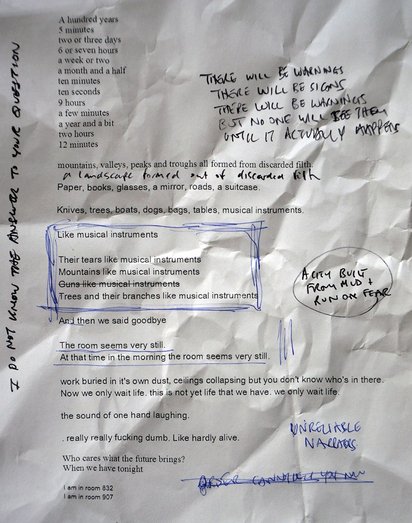 A hundred years
5 minutes
two or three days
6 or seven hours
a week or two
a month and a half
ten minutes
ten seconds
9 hours
a few minutes
a year and a bit
two hours
12 minutes
THERE WILL BE WARNINGS
THERE WILL BE SIGNS
THERE WILL BE WARNINGS
BUT NO ONE WILL SEE THEM
UNTIL IT ACTUALLY HAPPENS
I DO NOT KNOW THE ANSWER TO YOUR QUESTION
mountains, valleys, peaks and troughs all formed from discarded filth.
a landscape formed out of discarded filth
Paper, books, glasses, a mirror, roads, a suitcase.
Knives, trees, boats, dogs, bags, tables, musical instruments.
Like musical instruments
Their tears like musical instruments
Mountains like musical instruments
Guns like musical instruments
Trees and their branches like musical instruments
A CITY BUILT
FROM MUD +
RUN ON FEAR
And then we said goodbye
The room seems very still.
At that time in the morning the room seems very still.
work buried in it's own dust, ceilings collapsing but you don't know who's in there.
Now we only wait life. this is not yet life that we have. we only wait life.
the sound of one hand laughing.
UNRELIABLE
NARRATORS
. really really fucking dumb. Like hardly alive.
Who cares what the future brings?
When we have tonight
I am in room 832
I am in room 907